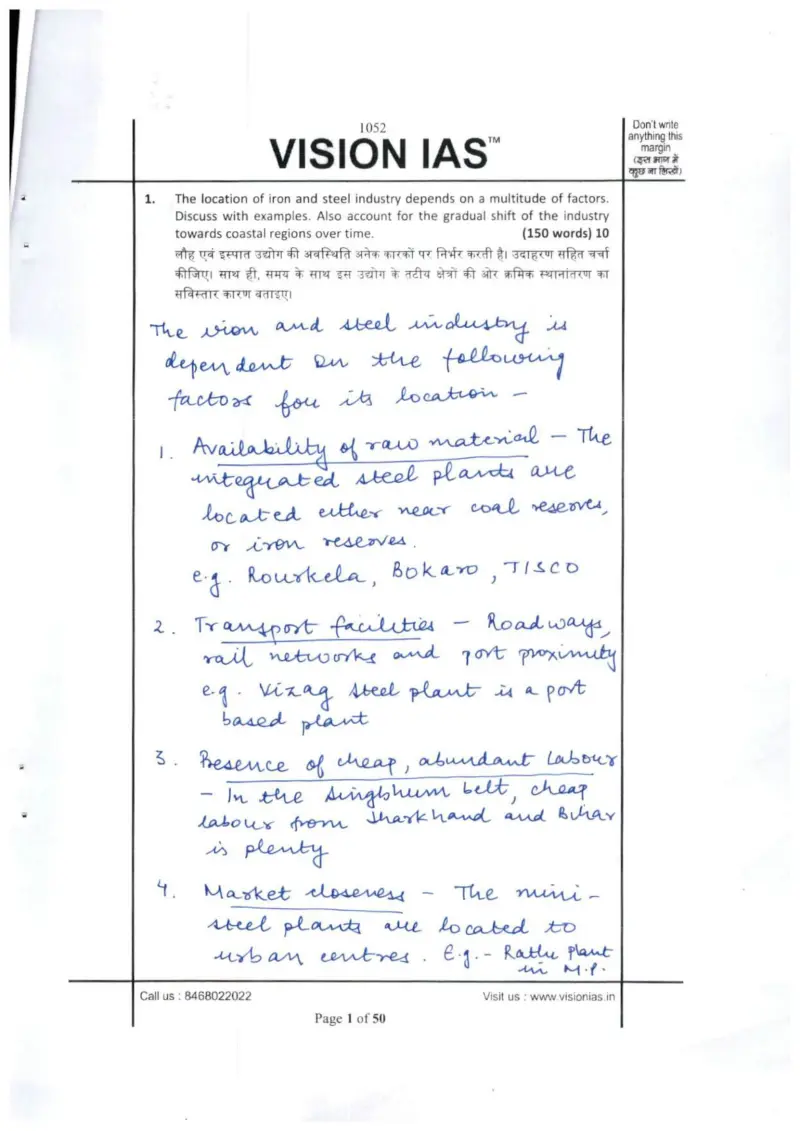 1052
VISION IAS™
Don't write
anything this
margin
(इस भाग में
कुछ ना लिखें)
1. The location of iron and steel industry depends on a multitude of factors.
Discuss with examples. Also account for the gradual shift of the industry
towards coastal regions over time. (150 words) 10
लौह एवं इस्पात उद्योग की अवस्थिति अनेक कारकों पर निर्भर करती है। उदाहरण सहित चर्चा
कीजिए। साथ ही, समय के साथ इस उद्योग के तटीय क्षेत्रों की ओर क्रमिक स्थानांतरण का
सविस्तार कारण बताइए।
The iron and steel industry is
dependent on the following
factors for its location -
1. Availability of raw material - The
integrated steel plants are
located either near coal reserves,
or iron reserves.
e.g. Rourkela, Bokaro, TISCO
2. Transport facilities - Roadways,
rail networks and port proximity
e.g. Vizag steel plant is a port
based plant
3. Presence of cheap, abundant labour
- In the Singbhum belt, cheap
labour from Jharkhand and Bihar
is plenty
4. Market closeness - The mini-
steel plants are located to
urban centres. E.g. - Plant
in M.P.
Call us : 8468022022
Visit us : www.visionias.in
Page 1 of 50